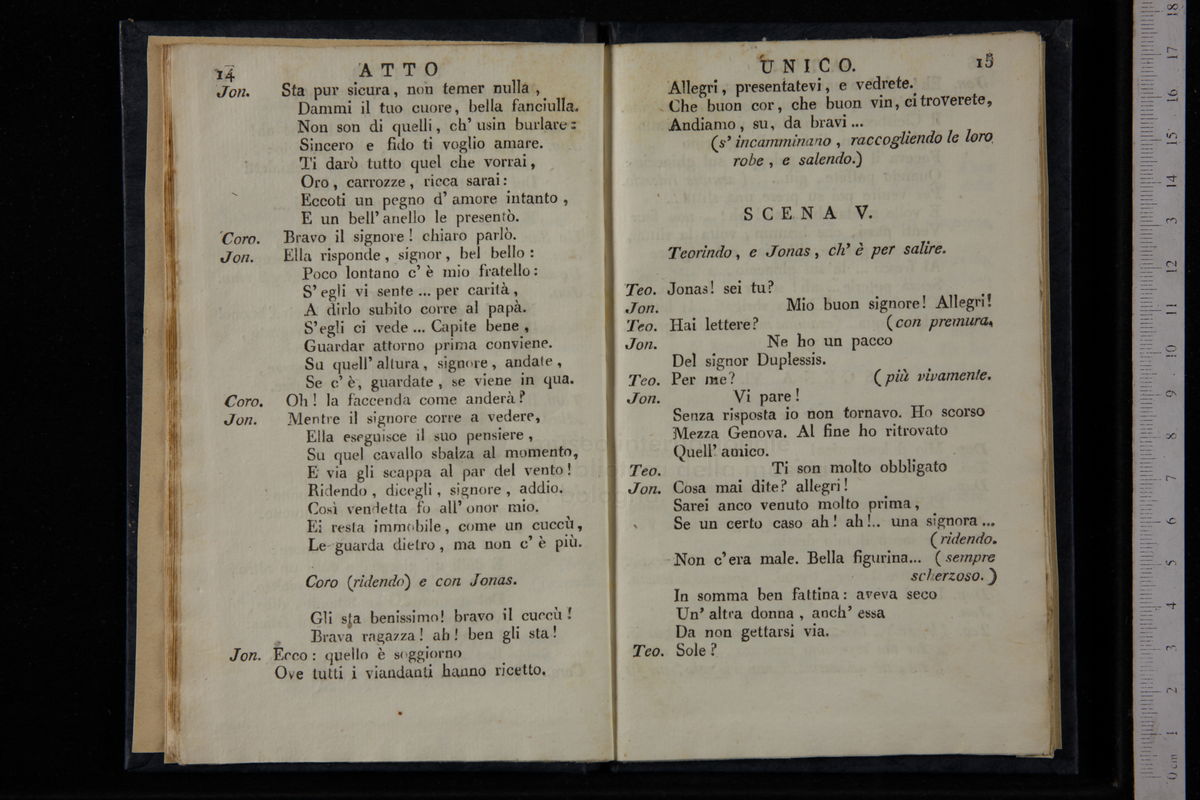 14 ATTO
Jon. Sta pur sicura, non temer nulla,
Dammi il tuo cuore, bella fanciulla.
Non son di quelli, ch' usin burlare:
Sincero e fido ti voglio amare.
Ti darò tutto quel che vorrai,
Oro, carrozze, ricca sarai:
Eccoti un pegno d' amore intanto,
E un bell' anello le presentò.
Coro. Bravo il signore! chiaro parlò.
Jon. Ella risponde, signor, bel bello:
Poco lontano c' è mio fratello:
S' egli vi sente ... per carità,
A dirlo subito corre al papà.
S'egli ci vede ... Capite bene,
Guardar attorno prima conviene.
Su quell' altura, signore, andate,
Se c' è, guardate, se viene in qua.
Coro. Oh! la faccenda come anderà?
Jon. Mentre il signore corre a vedere,
Ella eseguisce il suo pensiere,
Su quel cavallo sbalza al momento,
E via gli scappa al par del vento!
Ridendo, dicegli, signore, addio.
Così vendetta fo all' onor mio.
Ei resta immobile, come un cuccù,
Le guarda dietro, ma non c' è più.
Coro (ridendo) e con Jonas.
Gli sta benissimo! bravo il cuccù!
Brava ragazza! ah! ben gli sta!
Jon. Ecco: quello è soggiorno
Ove tutti i viandanti hanno ricetto.
UNICO. 15
Allegri, presentatevi, e vedrete.
Che buon cor, che buon vin, ci troverete,
Andiamo, su, da bravi ...
(s' incamminano, raccogliendo le loro
robe, e salendo.)
SCENA V.
Teorindo, e Jonas, ch' è per salire.
Teo. Jonas! sei tu?
Jon. Mio buon signore! Allegri!
Teo. Hai lettere? (con premura.
Jon. Ne ho un pacco
Del signor Duplessis.
Teo. Per me? (più vivamente.
Jon. Vi pare!
Senza risposta io non tornavo. Ho scorso
Mezza Genova. Al fine ho ritrovato
Quell' amico.
Teo. Ti son molto obbligato
Jon. Cosa mai dite? allegri!
Sarei anco venuto molto prima,
Se un certo caso ah! ah!.. una signora ...
(ridendo.
Non c'era male. Bella figurina... (sempre
scherzoso.)
In somma ben fattina: aveva seco
Un' altra donna, anch' essa
Da non gettarsi via.
Teo. Sole?